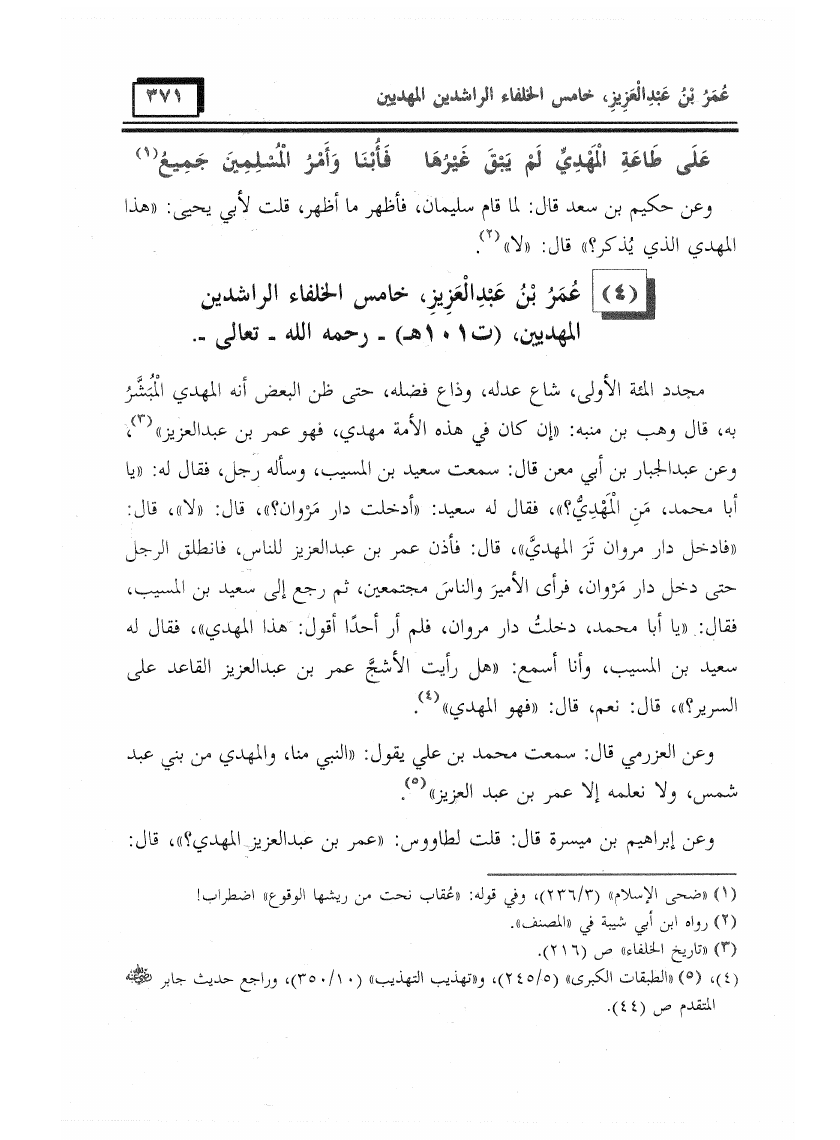 عُمَرُ بْنُ عَبْدِالْعَزِيزِ، خامس الخلفاء الراشدين المهديين
٣٧١
عَلَى طَاعَةِ الْمَهْدِيِّ لَمْ يَبْقَ غَيْرُهَا فَأُبْنَا وَأَمْرُ الْمُسْلِمِينَ جَمِيعُ(١)
وعن حكيم بن سعد قال: لما قام سليمان، فأظهر ما أظهر، قلت لأبي يحيى: «هذا
المهدي الذي يُذكر؟» قال: «لا»(٢).
(٤) عُمَرُ بْنُ عَبْدِالْعَزِيزِ، خامس الخلفاء الراشدين
المهديين، (ت١٠١هـ) ـ رحمه الله ـ تعالى ـ.
مجدد المئة الأولى، شاع عدله، وذاع فضله، حتى ظن البعض أنه المهدي الْمُبَشَّرُ
به، قال وهب بن منبه: «إن كان في هذه الأمة مهدي، فهو عمر بن عبدالعزيز»(٣)،
وعن عبدالجبار بن أبي معن قال: سمعت سعيد بن المسيب، وسأله رجل، فقال له: «يا
أبا محمد، مَنِ الْمَهْدِيُّ؟»، فقال له سعيد: «أدخلت دار مَرْوان؟»، قال: «لا»، قال:
«فادخل دار مروان تَرَ المهديَّ»، قال: فأذن عمر بن عبدالعزيز للناس، فانطلق الرجل
حتى دخل دار مَرْوان، فرأى الأميرَ والناسَ مجتمعين، ثم رجع إلى سعيد بن المسيب،
فقال: «يا أبا محمد، دخلتُ دار مروان، فلم أر أحدًا أقول: هذا المهدي»، فقال له
سعيد بن المسيب، وأنا أسمع: «هل رأيت الأشجَّ عمر بن عبدالعزيز القاعد على
السرير؟»، قال: نعم، قال: «فهو المهدي»(٤).
وعن العزرمي قال: سمعت محمد بن علي يقول: «النبي منا، والمهدي من بني عبد
شمس، ولا نعلمه إلا عمر بن عبد العزيز»(٥).
وعن إبراهيم بن ميسرة قال: قلت لطاووس: «عمر بن عبدالعزيز المهدي؟»، قال:
(١) «ضحى الإسلام» (٢٣٦/٣)، وفي قوله: «عُقاب نحت من ريشها الوقوع» اضطراب!
(٢) رواه ابن أبي شيبة في «المصنف».
(٣) «تاريخ الخلفاء» ص (٢١٦).
(٤)، (٥) «الطبقات الكبرى» (٢٤٥/٥)، و«تهذيب التهذيب» (٣٥٠/١٠)، وراجع حديث جابر ﵁
المتقدم ص (٤٤).